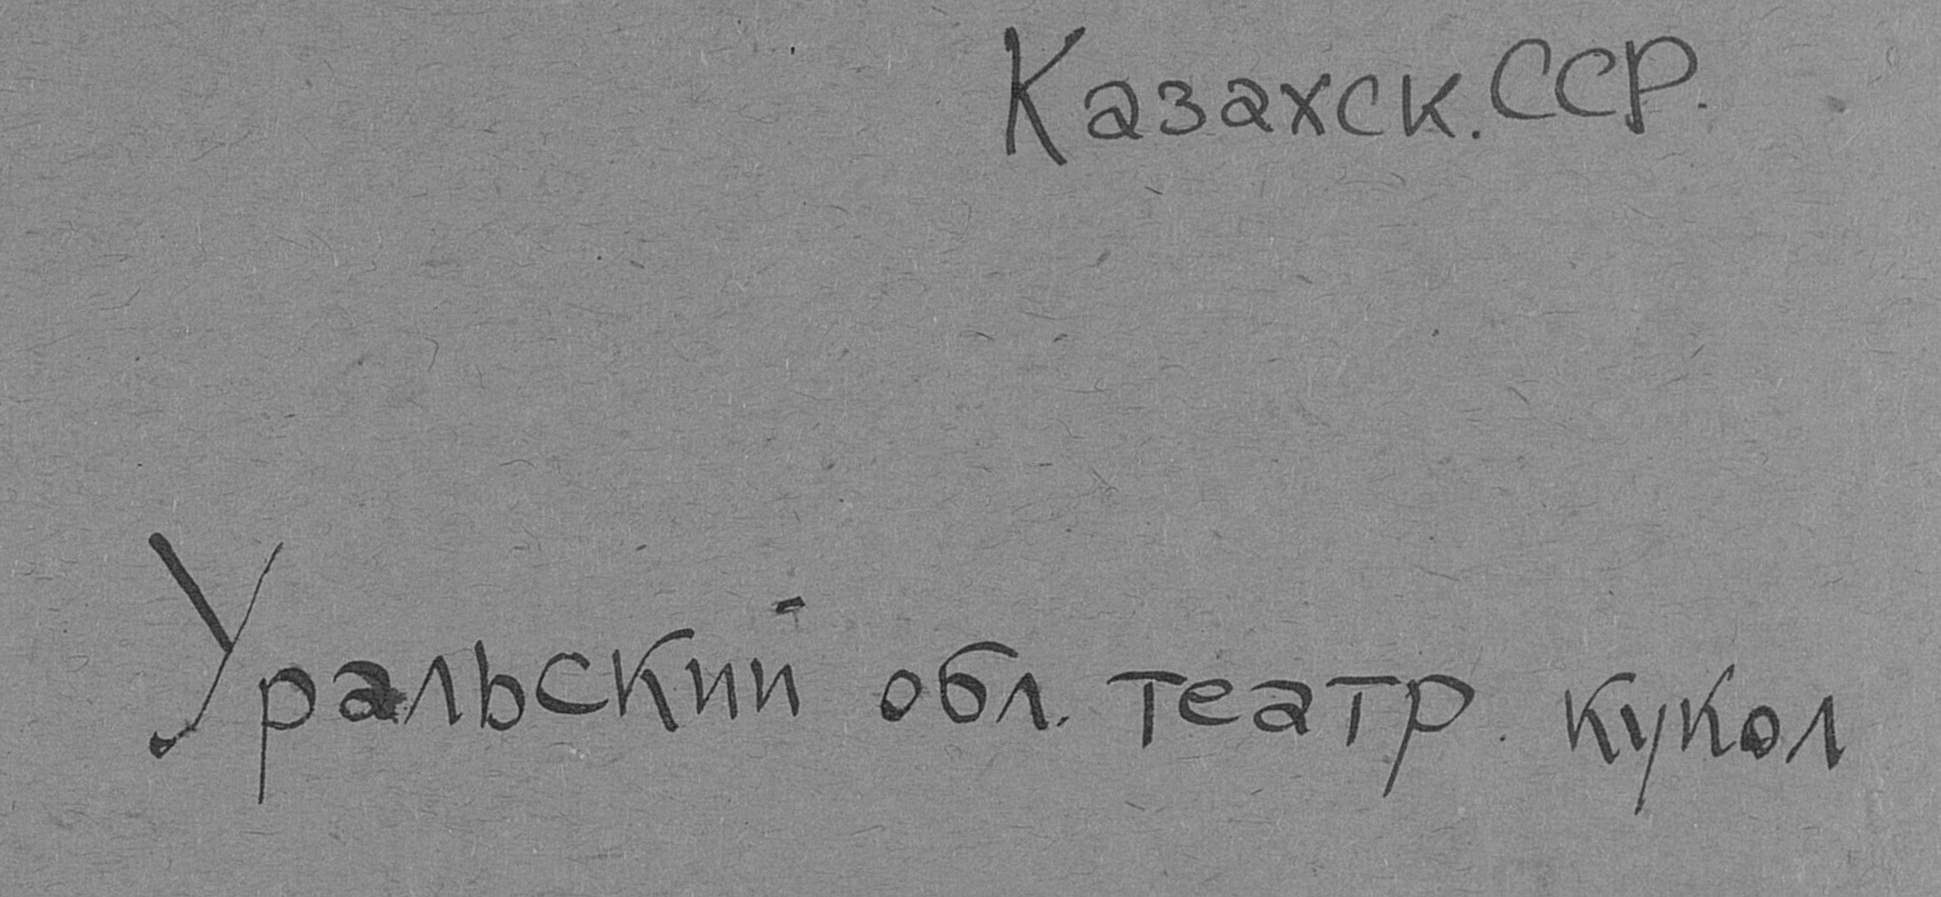 Казахск. ССР.
Уральский обл. театр кукол